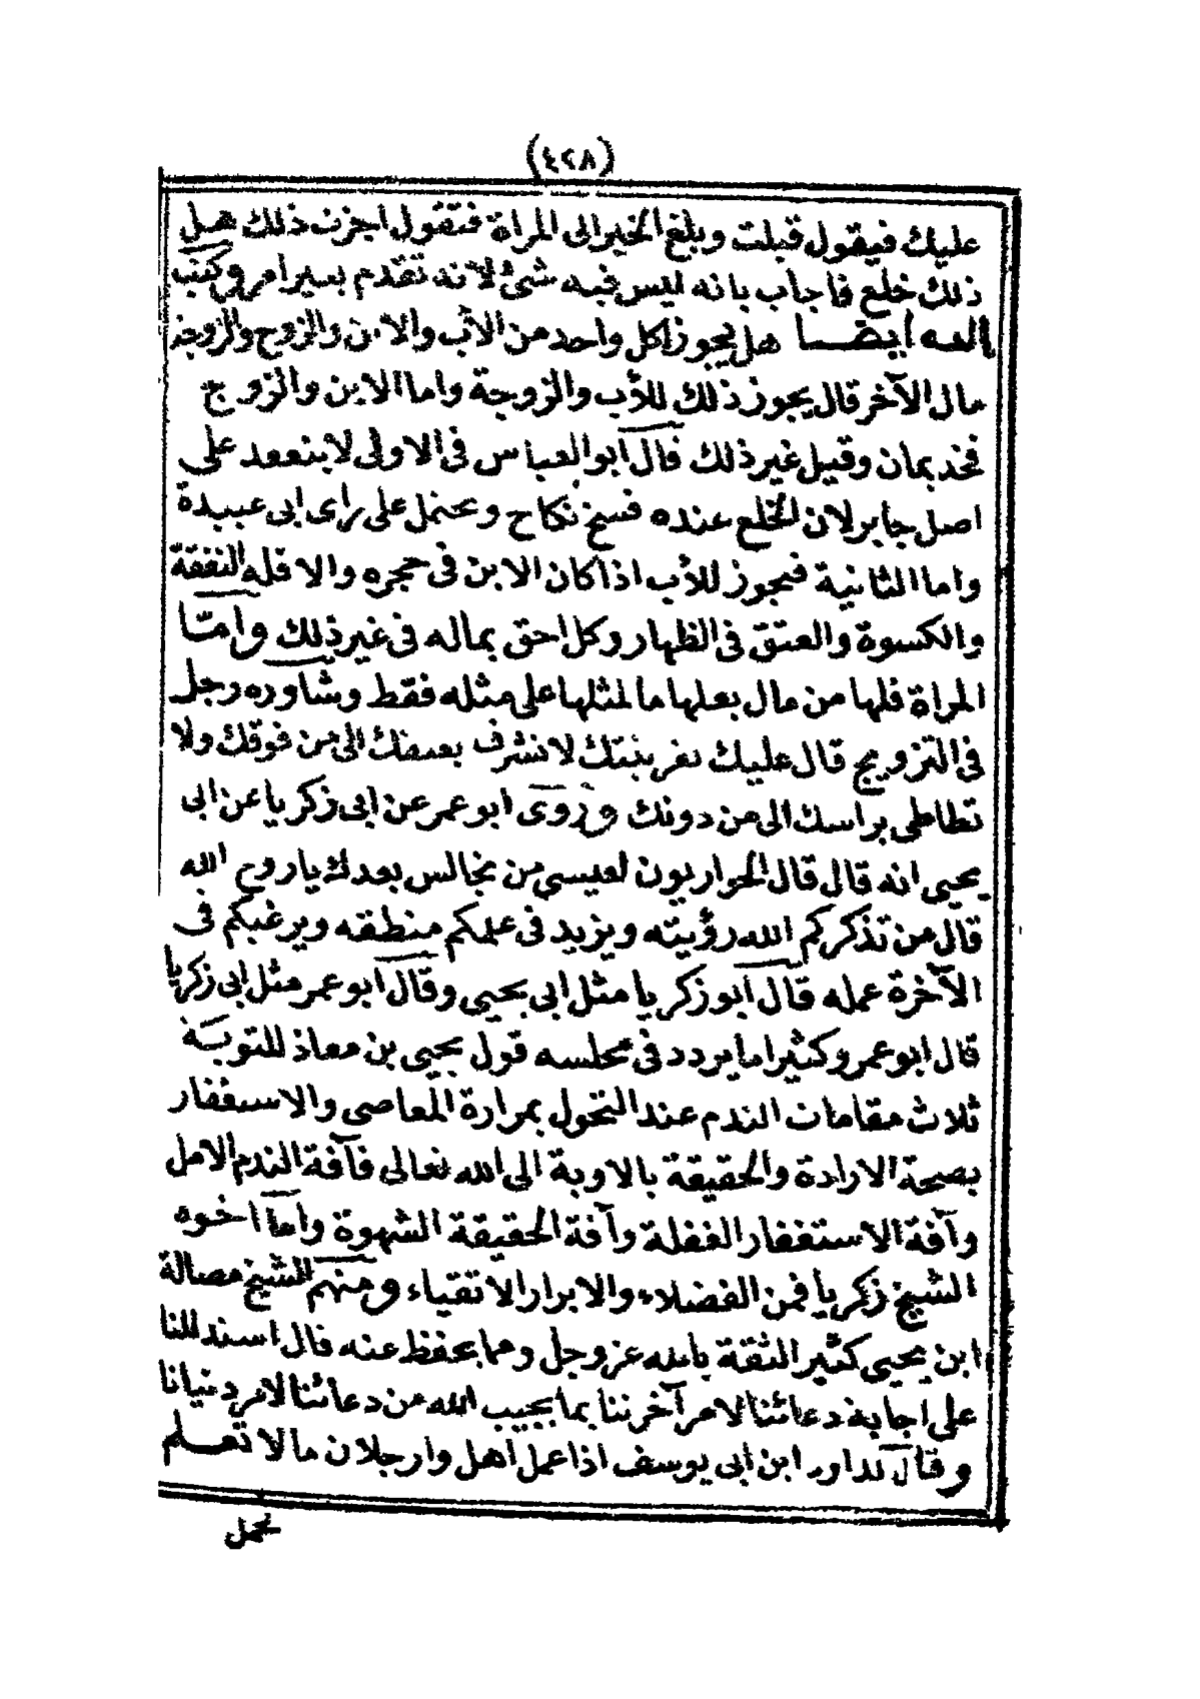 (٤٢٨)
عليك فيقول قبلت وبلغ الخبر الى المراة فتقول اجزت ذلك هل
ذلك خلع فاجاب بانه ليس فيه شئ لانه تقدم بغير امر وكتب
اليه ايضا هل يجوز اكل واحد من الأب والابن والزوج والزوجة
مال الآخر قال يجوز ذلك للأب والزوجة واما الابن والزوج
فخديمان وقيل غير ذلك قال ابو العباس فى الاولى لا ينعقد على
اصل جابر لان الخلع عنده فسخ نكاح ويحتمل على راى ابى عبيدة
واما الثانية فيجوز للأب اذا كان الابن فى حجره والا فله النفقة
والكسوة والعتق فى الظهار وكل احق بماله فى غير ذلك وامّا
المراة فلها من مال بعلها ما لمثلها على مثله فقط وشاوره رجل
فى التزويج قال عليك بقريبتك لا تشرف بعنقك الى من فوقك ولا
تطاطى براسك الى من دونك وروى ابو عمر عن ابى زكريا عن ابى
يحيى انه قال قال الحواريون لعيسى من نجالس بعدك يا روح الله
قال من تذكركم الله رؤيته ويزيد فى علمكم منطقه ويرغبكم فى
الآخرة عمله قال ابو زكريا مثل ابى يحيى وقال ابو عمر مثل ابى زكريا
قال ابو عمر وكثيرا ما يردد فى مجلسه قول يحيى بن معاذ للتوبة
ثلاث مقامات الندم عند التحول بمرارة المعاصى والاستغفار
بصحة الارادة والحقيقة بالاوبة الى الله تعالى فآفة الندم الامل
وآفة الاستغفار الغفلة وآفة الحقيقة الشهوة واما اخوه
الشيخ زكريا فمن الفضلاء والابرار الاتقياء ومنهم الشيخ مصالة
ابن يحيى كثير الثقة بالله عز وجل ومما يحفظ عنه قال استدللنا
على اجابة دعائنا لامر آخرتنا بما يجيب الله من دعائنا لامر دنيانا
وقال لداود ابن ابى يوسف اذا عمل اهل وارجلان ما لا تعلم
تحمل